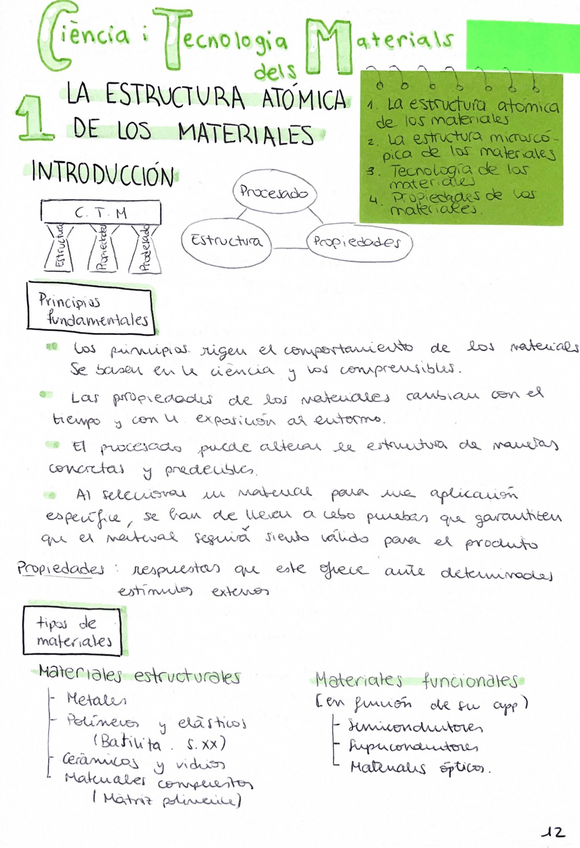 Ciència i Tecnologia dels Materials
1 LA ESTRUCTURA ATÓMICA
DE LOS MATERIALES
1. La estructura atomica
de los materiales
2. La estructura microscó-
pica de los materiales
3. Tecnología de los
materiales
4. Propiedades de los
materiales.
INTRODUCCIÓN
C. T. M
Estructura
Propiedades
Procesado
Procesado
Estructura
Propiedades
Principios
fundamentales
Los principios rigen el comportamiento de los materiales
Se basan en la ciència y los comprensibles.
Las propiedades de los materiales cambian con el
tiempo y con la exposición al entorno.
El procesado puede alterar la estructura de maneras
concretas y predecibles.
Al seleccionar un material para una aplicación
específica, se han de llevar a cabo pruebas que garantiten
que el material seguirá siento válido para el producto
Propiedades: respuestas que este ofrece ante determinados
estímulos externos
tipos de
materiales
Materiales estructurales
Metales
Polímeros y elásticos
(Batilita. S.XX)
Cerámicos y vidrios
Materiales compuestos
(Matriz polimerica)
Materiales funcionales
(en función de su app)
Semiconductores
Superconductores
Materiales ópticos.
12